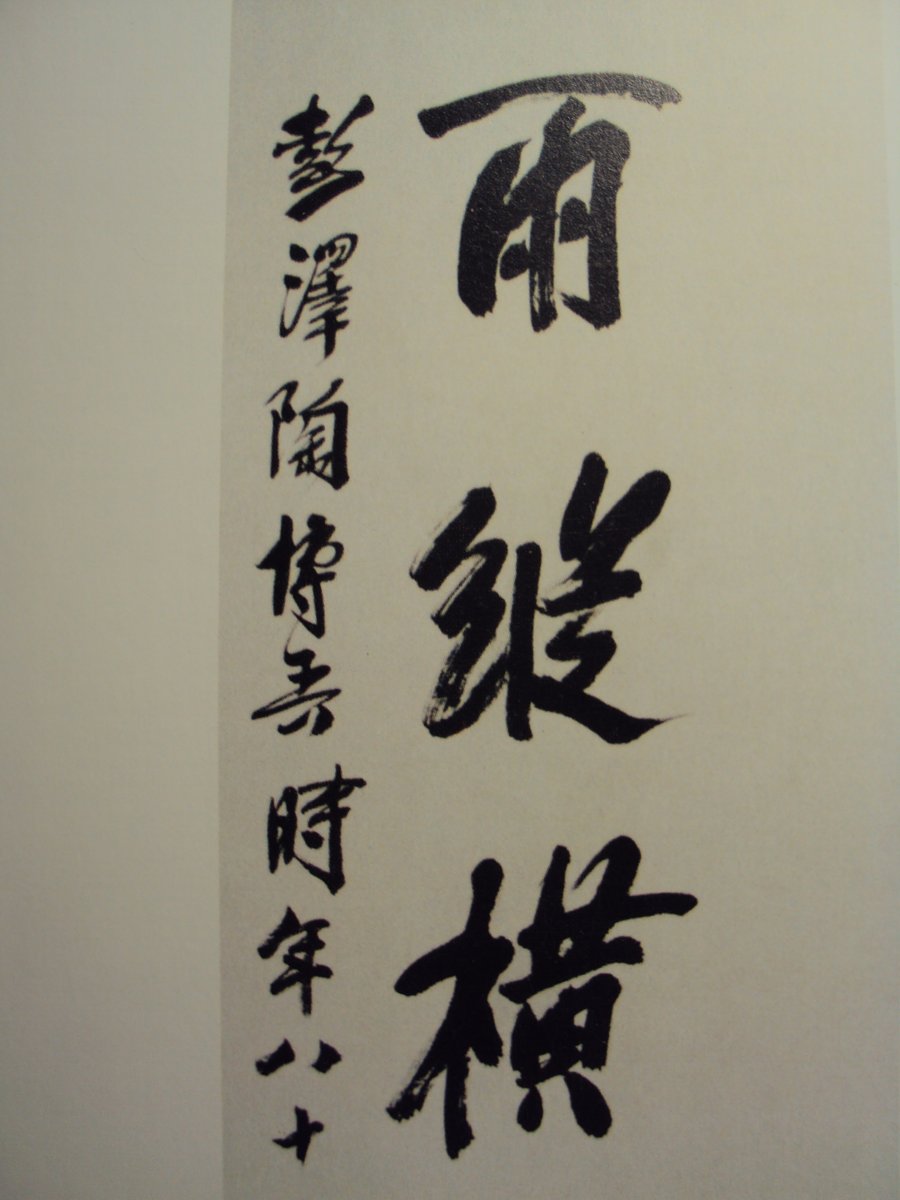 雨縱橫
彭澤陶博吾時年八十